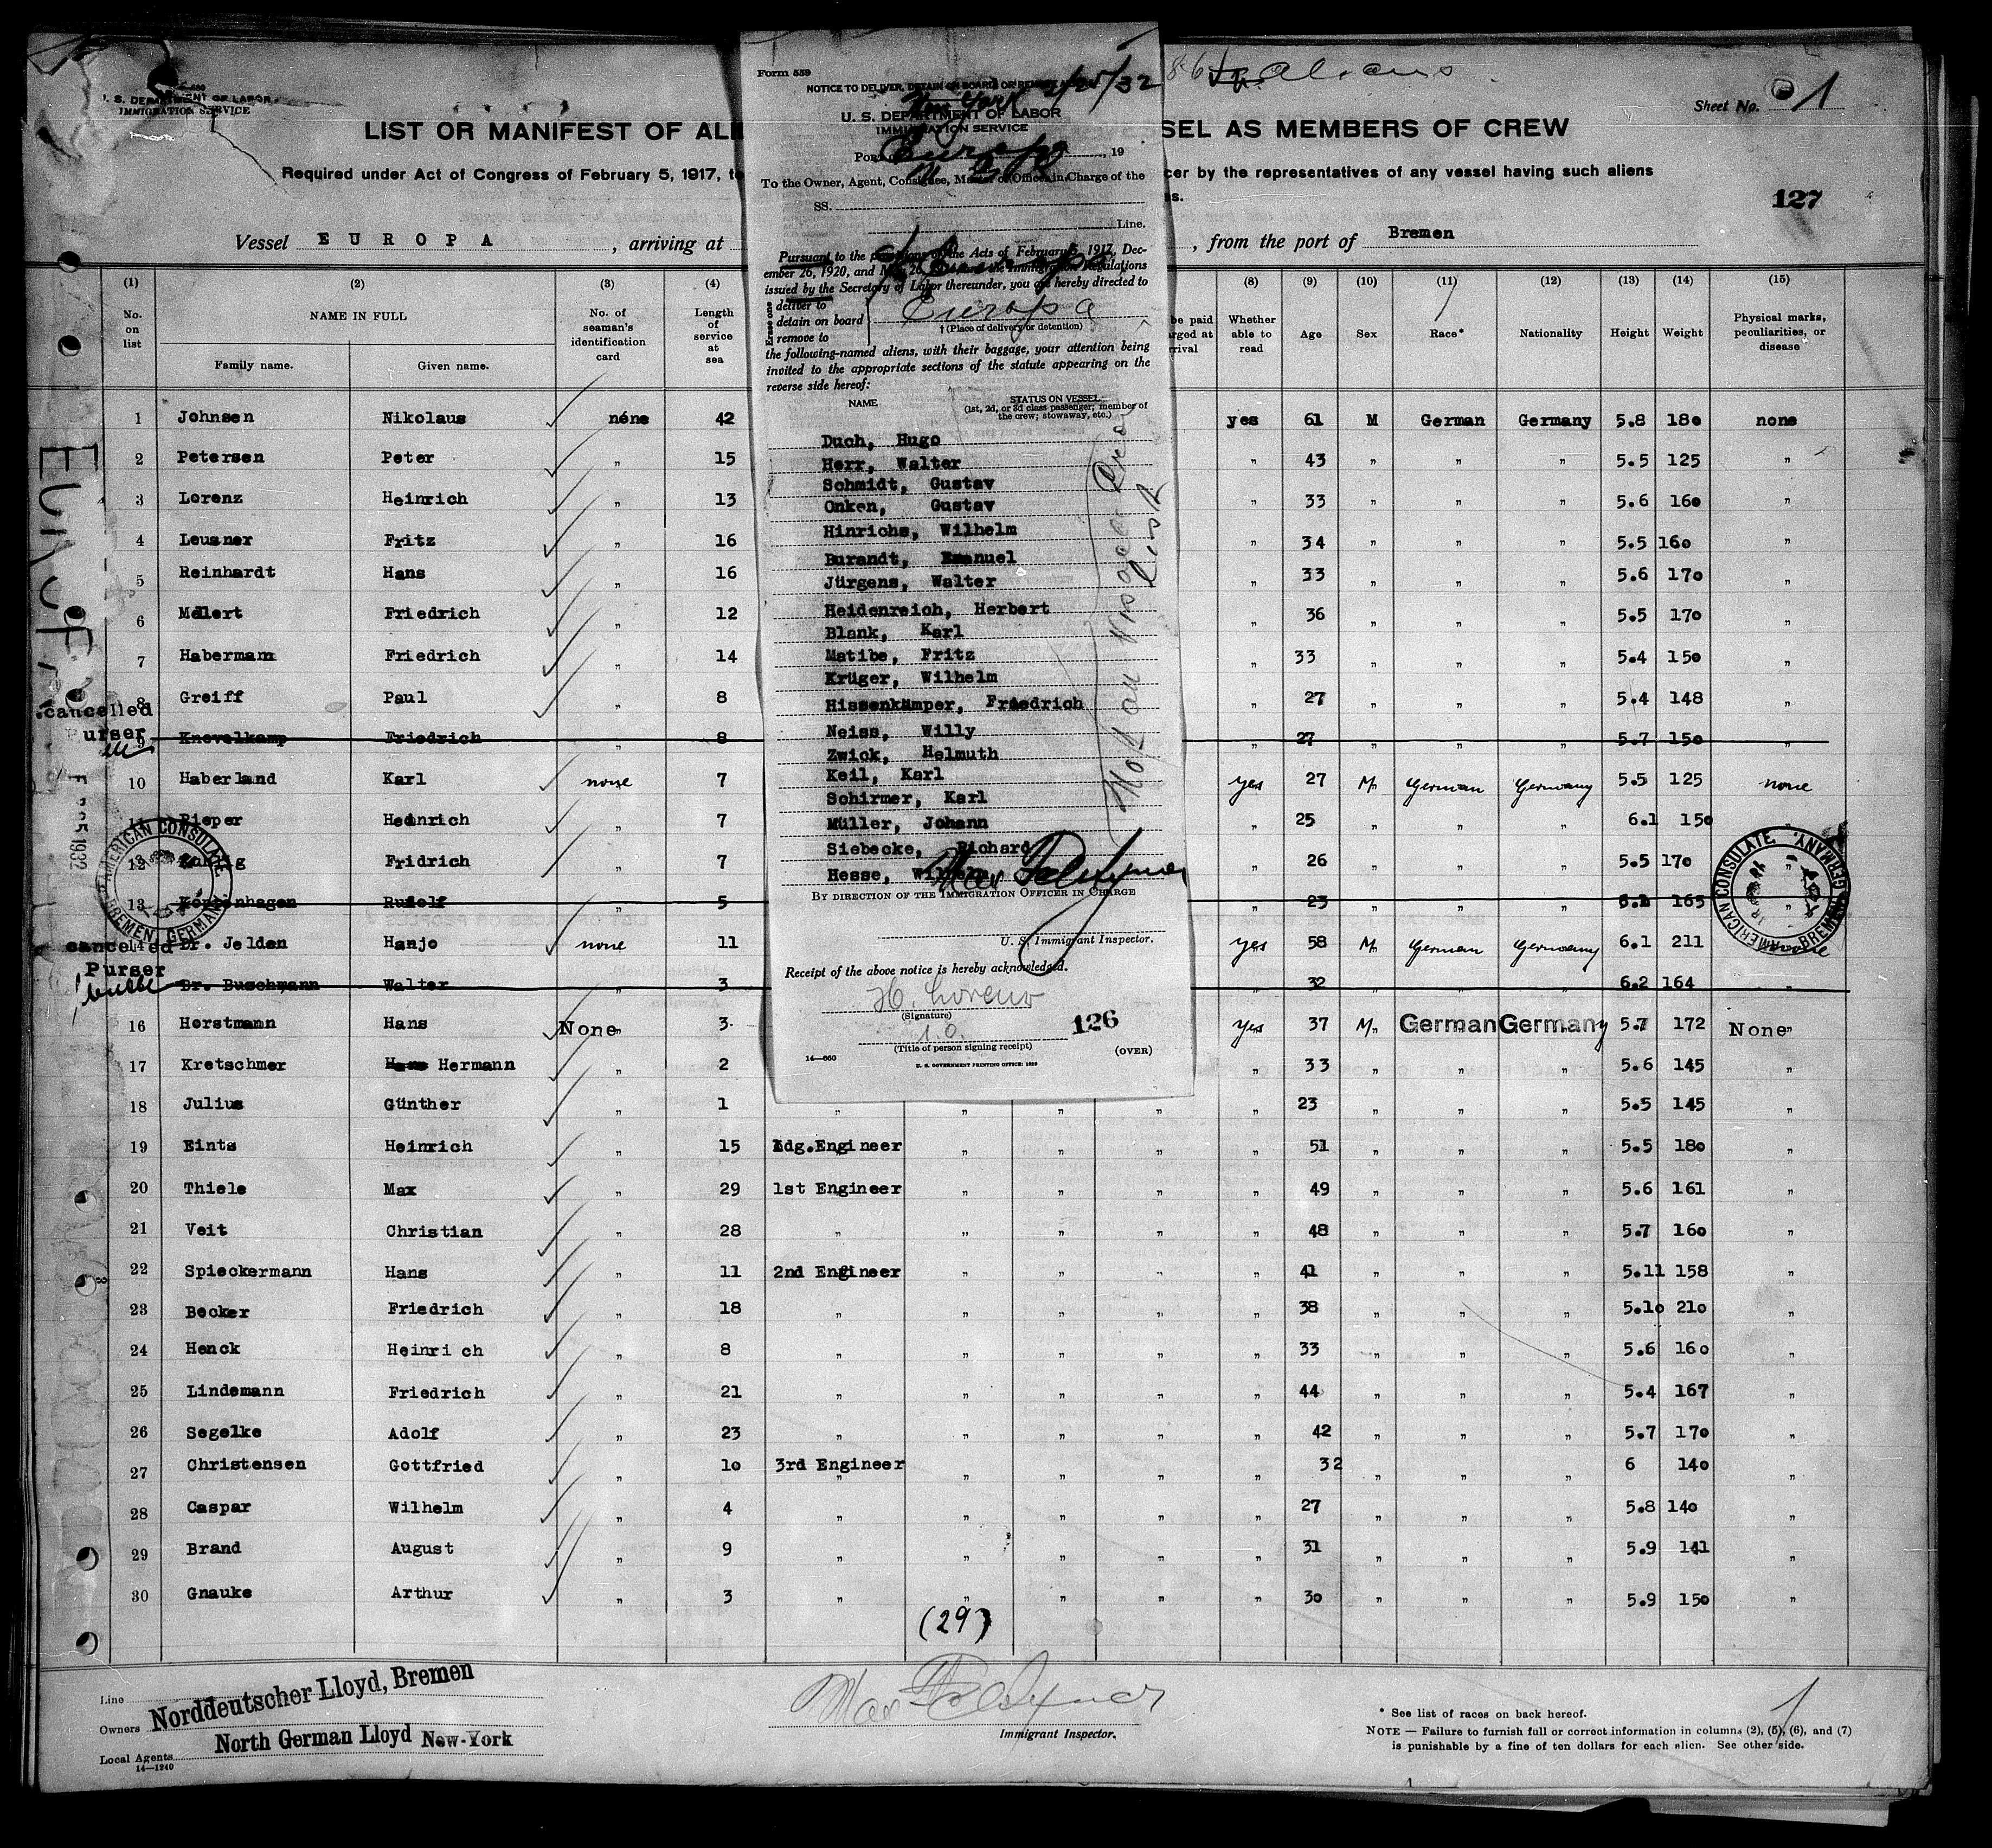 Sheet No. 1
U. S. DEPARTMENT OF LABOR
IMMIGRATION SERVICE
LIST OR MANIFEST OF ALI
SEL AS MEMBERS OF CREW
Required under Act of Congress of February 5, 1917, to
cer by the representatives of any vessel having such aliens
127
Vessel EUROPA , arriving at
, from the port of Bremen
Form 559
NOTICE TO DELIVER, DETAIN ON BOARD OR
New York 2/25/32
U. S. DEPARTMENT OF LABOR
IMMIGRATION SERVICE
Europa
Port , 19
To the Owner, Agent, Consignee, Master or Officer in Charge of the
SS.
Line.
Pursuant to the provisions of the Acts of February 5, 1917, Dec-
ember 26, 1920, and May 26, the Immigration Regulations
issued by the Secretary of Labor thereunder, you are hereby directed to
Erase one
deliver to
detain on board
remove to
Europa
† (Place of delivery or detention)
the following-named aliens, with their baggage, your attention being
invited to the appropriate sections of the statute appearing on the
reverse side hereof:
NAME
STATUS ON VESSEL
(1st, 2d, or 3d class passenger; member of
the crew; stowaway, etc.)
Duch, Hugo
Herr, Walter
Schmidt, Gustav
Onken, Gustav
Hinrichs, Wilhelm
Burandt, Emanuel
Jürgens, Walter
Heidenreich, Herbert
Blank, Karl
Matibe, Fritz
Krüger, Wilhelm
Hissenkämper, Friedrich
Neiss, Willy
Zwick, Helmuth
Keil, Karl
Schirmer, Karl
Müller, Johann
Siebecke, Richard
Hesse, Wilhelm
Not on Visaed Crew List
BY DIRECTION OF THE IMMIGRATION OFFICER IN CHARGE
U. S. Immigrant Inspector.
Receipt of the above notice is hereby acknowledged.
(Signature)
126
(Title of person signing receipt)
14—660
(OVER)
U. S. GOVERNMENT PRINTING OFFICE: 1929
(1) (2) (3) (4) (8) (9) (10) (11) (12) (13) (14) (15)
No. on list
NAME IN FULL
Family name. Given name.
No. of seaman's identification card
Length of service at sea
Whether able to read
Age Sex Race* Nationality Height Weight
Physical marks, peculiarities, or disease
1 Johnsen Nikolaus none 42 yes 61 M German Germany 5.8 180 none
2 Petersen Peter " 15 " 43 " " " 5.5 125 "
3 Lorenz Heinrich " 13 " 33 " " " 5.6 160 "
4 Leusner Fritz " 16 " 34 " " " 5.5 160 "
5 Reinhardt Hans " 16 " 33 " " " 5.6 170 "
6 Mellert Friedrich " 12 " 36 " " " 5.5 170 "
7 Habermann Friedrich " 14 " 33 " " " 5.4 150 "
8 Greiff Paul " 8 " 27 " " " 5.4 148 "
cancelled
Purser
9 Knevelkamp Friedrich " 8 " 27 " " " 5.7 150 "
10 Haberland Karl none 7 yes 27 M German Germany 5.5 125 none
11 Pieper Heinrich " 7 " 25 " " " 6.1 150 "
12 Fridrich " 7 " 26 " " " 5.5 170 "
13 Koppenhagen Rudolf " 5 " 23 " " " 6.1 165 "
14 Dr. Jelden Hanjo none 11 yes 58 M German Germany 6.1 211
cancelled
Purser
Dr. Buschmann Walter " 3 " 32 " " " 6.2 164 "
16 Horstmann Hans None 3 yes 37 M German Germany 5.7 172 None
17 Kretschmer Hans Hermann " 2 " 33 " " " 5.6 145 "
18 Julius Günther " 1 " " " " " 23 " " " 5.5 145 "
19 Eints Heinrich " 15 Ldg.Engineer " " " " 51 " " " 5.5 180 "
20 Thiele Max " 29 1st Engineer " " " " 49 " " " 5.6 161 "
21 Veit Christian " 28 " " " " " 48 " " " 5.7 160 "
22 Spieckermann Hans " 11 2nd Engineer " " " " 41 " " " 5.11 158 "
23 Becker Friedrich " 18 " " " " " 38 " " " 5.10 210 "
24 Henck Heinrich " 8 " " " " " 33 " " " 5.6 160 "
25 Lindemann Friedrich " 21 " " " " " 44 " " " 5.4 167 "
26 Segelke Adolf " 23 " " " " " 42 " " " 5.7 170 "
27 Christensen Gottfried " 10 3rd Engineer " " " " 32 " " " 6 140 "
28 Caspar Wilhelm " 4 " " " " " 27 " " " 5.8 140 "
29 Brand August " 9 " " " " " 31 " " " 5.9 141 "
30 Gnauke Arthur " 3 " " " " " 30 " " " 5.9 150 "
(29)
AMERICAN CONSULATE, BREMEN, GERMANY
AMERICAN CONSULATE. BREMEN, GERMANY.
Line
Owners Norddeutscher Lloyd, Bremen
Local Agents North German Lloyd New-York
14—1240
Immigrant Inspector.
* See list of races on back hereof.
NOTE — Failure to furnish full or correct information in columns (2), (5), (6), and (7)
is punishable by a fine of ten dollars for each alien. See other side.